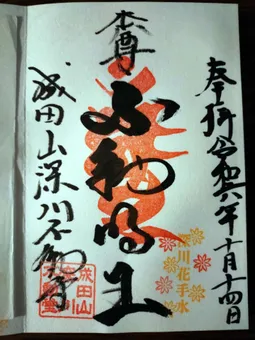 奉拝 令和六年十月十四日
本尊
不動明王
深川花手水
成田山深川不動堂
成田山